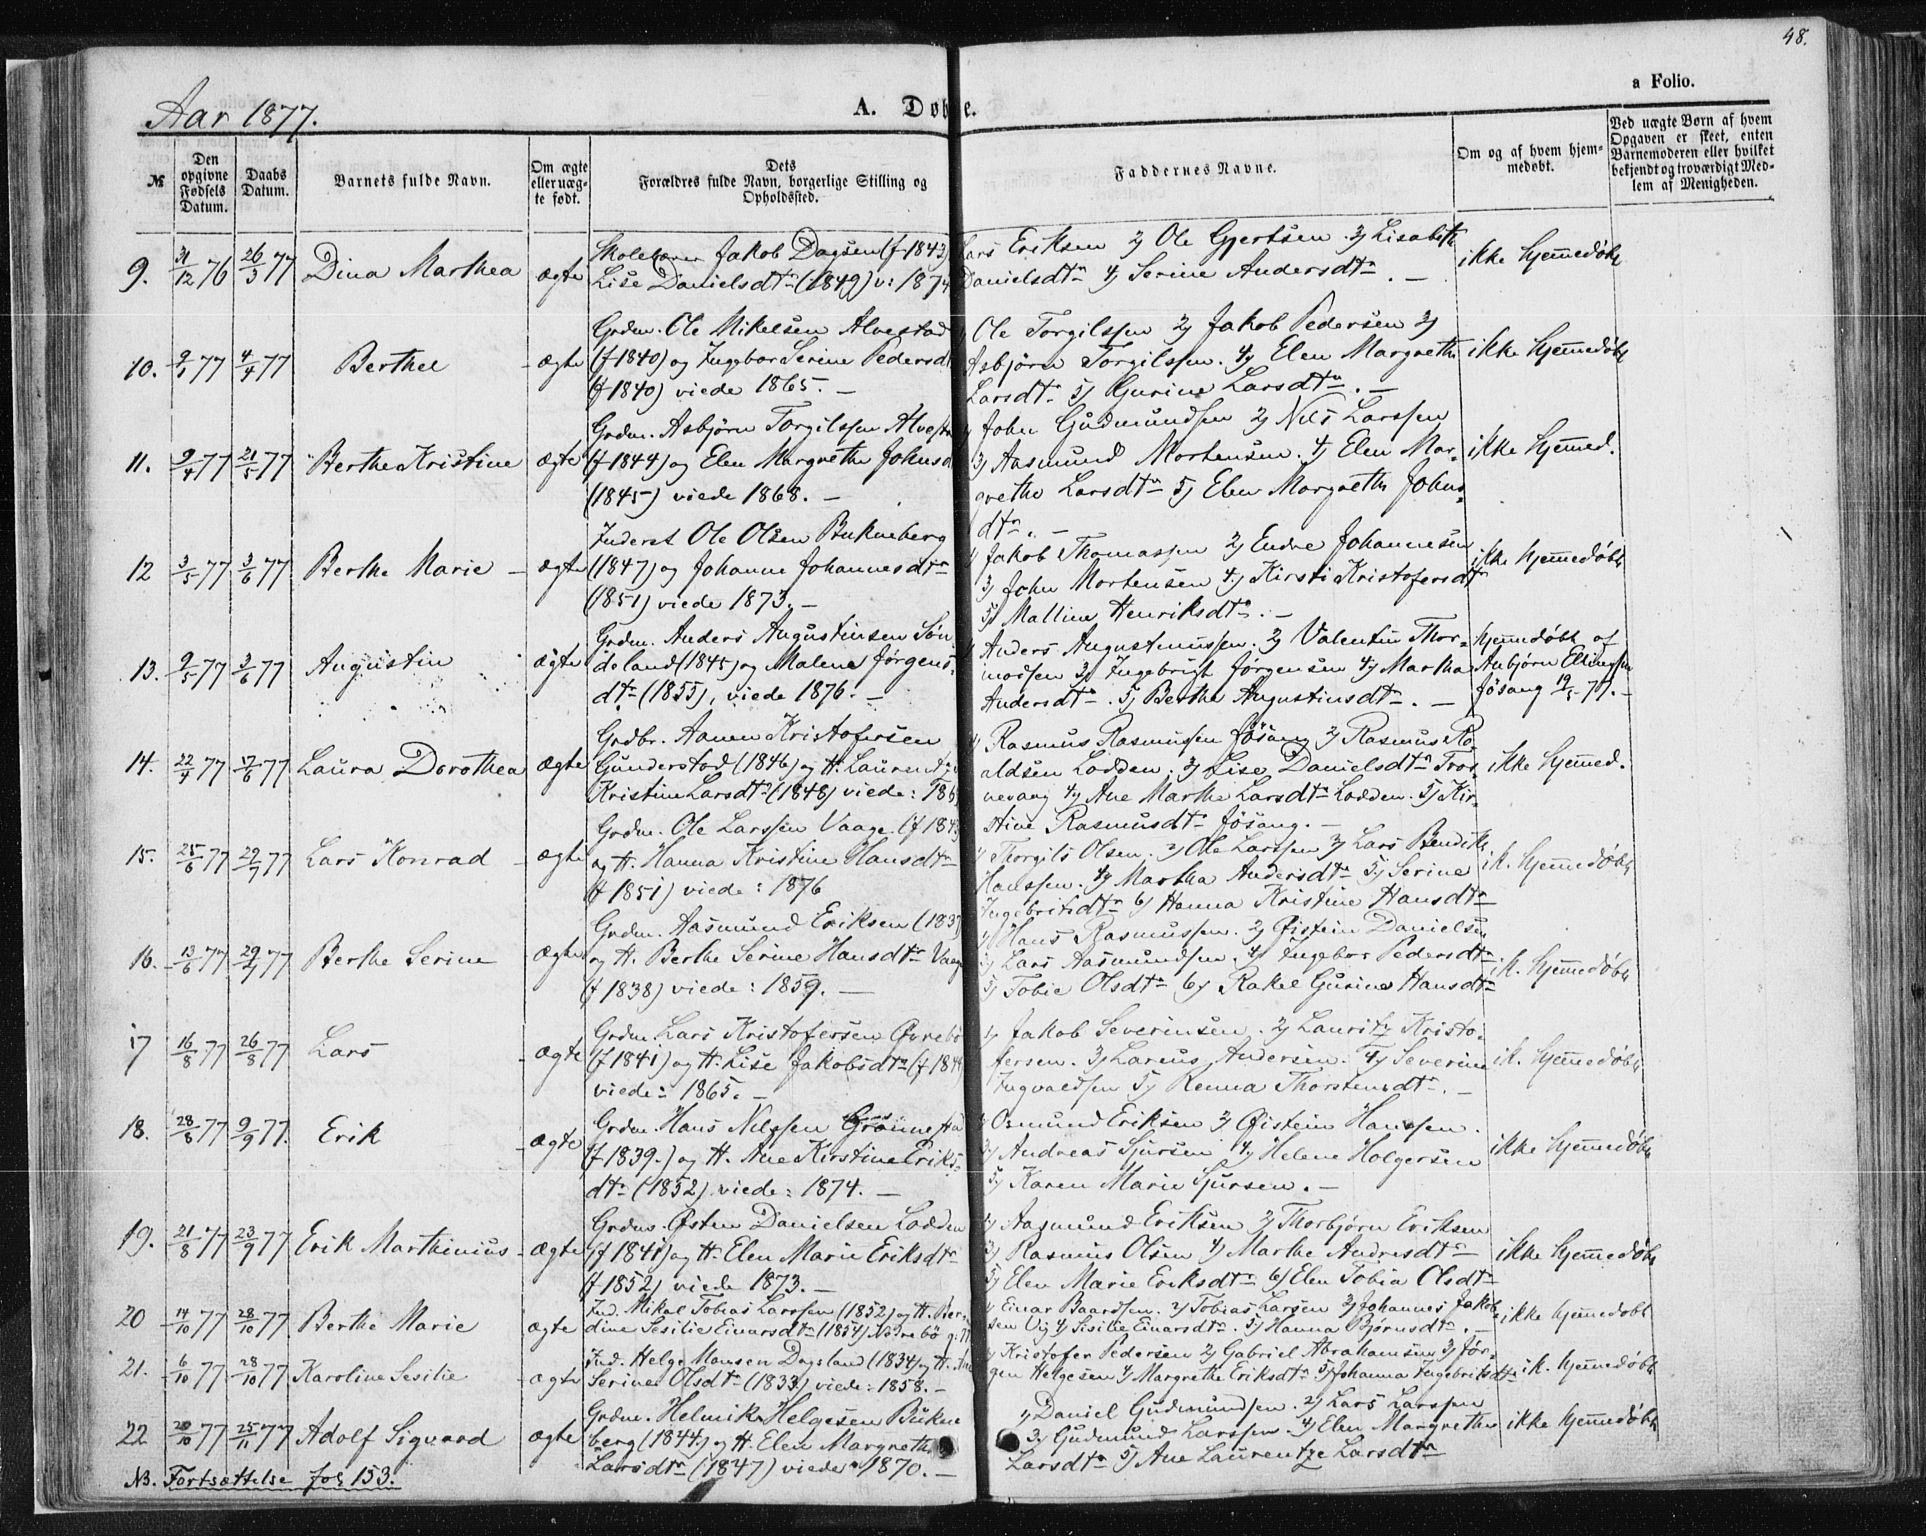 48.
a Folio.
Aar 1877.
A. Døbte.
№
Den opgivne Fødsels Datum.
Daabs Datum.
Barnets fulde Navn.
Om ægte eller uægte født.
Dets Forældres fulde Navn, borgerlige Stilling og Opholdssted.
Faddernes Navne.
Om og af hvem hjemmedøbt.
Ved uægte Børn af hvem Opgaven er skeet, enten Barnemoderen eller hvilket bekjendt og troværdigt Medlem af Menigheden.
9. 31/12 76 26/3 77 Dina Marthea ægte
Skolelærer Jakob Dagsen (f 1843)
Lise Danielsdtr (1849) v: 1874
Lars Eriksen 2) Ole Gjertsen 3) Lisabeth
Danielsdtr 4) Serine Andersdtr. —
ikke hjemmedøbt
10. 9/1 77 4/4 77 Berthe ægte
Grdm. Ole Mikelsen Alvestad
(f 1840) og Ingebor Serine Pedersdt
(f 1840) viede 1865. —
1) Ole Torgilssen 2) Jakob Pedersen 3)
Asbjörn Torgilssen. 4) Elen Margrethe
Larsdtr 5) Gurine Larsdtr. —
ikke hjemmedøbt
11. 9/4 77 21/5 77 Berthe Kristine ægte
Grdm. Asbjörn Torgilssen Alvesta
(f 1844) og Elen Margrethe Johnsd
(1845) viede 1868. —
1) John Gudmundsen 2) Nils Larssen
3) Aasmund Mortensen. 4) Elen Mar-
grethe Larsdtr 5) Elen Margrethe Johns-
dtr. —
ikke hjemmed.
12 3/5 77 3/6 77 Berthe Marie — ægte
Inderst Ole Olsen Bukneberg
(1847) og Johanne Johannesdtr
(1851) viede 1873. —
1) Jakob Thomassen 2) Endre Johannesen
3) John Mortensen 4) Kirsti Kristofersdtr
5) Malline Henriksdtr. —
ikke hjemmedøbt
13. 9/5 77 3/6 77 Augustin ægte
Grdm. Anders Augustinsen Sön-
deland (1845) og Malene Jörgens-
dtr (1855), viede 1876. —
1) Anders Augustinussen. 2) Valentin Thor-
modsen 3) Ingebrigt Jörgensen 4) Martha
Andersdtr. 5) Berthe Augustinsdtr. —
hjemmdøbt af
Anbjörn Ellingsen
Jösang 19/5 77. —
14. 22/4 77 17/6 77 Laura Dorothea ægte
Grdbr. Aanen Kristofersen
Gunderstad (1846) og H. Laurentze
Kristine Larsdtr (1848) viede: 186
1) Rasmus Rasmussen Jösang 2) Rasmus Ro-
aldsen Lodden. 3) Lise Danielsdtr Tros-
nevaag 4) Ane Marthe Larsdtr Lodden. 5) Kir-
stine Rasmusdtr Jösang. —
ikke hjemmed.
15. 25/6 77 29/7 77 Lars Konrad — ægte
Grdm. Ole Larssen Vaage (f 1843
og H. Hanna Kristine Hansdtr
(f 1851) viede: 1876
1) Thorgils Olsen. 2) Ole Larssen 3) Lars Bendik
Hanssen. 4) Martha Andersdtr 5) Serine
Ingebritsdtr 6) Hanna Kristine Hansdtr
ik. hjemmedøbt
16. 13/6 77 29/7 77 Berthe Serine ægte
Grdm. Aasmund Eriksen (1837
og H. Berthe Serine Hansdtr Vaage
(f 1838) viede: 1859. —
1) Hans Rasmussen. 2) Øistein Danielsen
3) Lars Aasmundsen. 4) Ingebor Pedersdtr
5) Tobie Olsdtr 6) Rakel Gurine Hansdtr
ik. hjemmedøbt
17 16/8 77 26/8 77 Lars ægte
Grdm. Lars Kristofersen Øvrebö
(f 1841) og H. Lise Jakobsdtr (f 184
viede: 1865. —
1) Jakob Severinsen. 2) Lauritz Kristo-
fersen. 3) Lareus Andersen. 4) Severine
Ingvaldsen 5) Renna Thorstensdtr. —
ik. hjemmedøbt
18. 28/8 77 9/9 77. Erik — ægte
Grdm. Hans Nilssen Grönnesta
(f 1839.) og H. Ane Kirstine Eriks-
dtr (1852) viede: 1874. —
1) Osmund Eriksen 2) Øistein Hanssen.
3) Andreas Sjursen 4) Helene Holgersen
5) Karen Marie Sjursen. —
ikke hjemmedøbt
19. 21/8 77 23/9 77 Erik Marthinius — ægte
Grdm. Østen Danielsen Lodden
(f 1841) og H. Elen Marie Eriksdtr
(f 1852) viede 1873. —
1) Aasmund Eriksen 2) Thorbjörn Eriksen
3) Rasmus Olsen 4) Marthe Andresdtr
5) Elen Marie Eriksdtr 6) Elen Tobia Olsdtr
ikke hjemmedøbt
20 14/10 77 28/10 77 Berthe Marie ægte
Ind. Mikal Tobias Larssen (1852) og H. Ber-
dine Sesilie Einarsdtr (1854)
1) Einar Baardsen. 2) Tobias Larsen 3) Johannes Jakob-
sen Vig 4) Sisilie Einarsdtr. 5) Hanna Björnsdtr. —
ikke hjemmedøbt
21. 6/10 77 28/10 77 Karoline Sesilie — ægte
Ind. Helge Monsen Dagsland (1834) og H. Ane
Serine Olsdtr (1833) viede: 1858. —
1) Kristofer Pedersen 2) Gabriel Abrahamsen 3) Jör-
gen Helgesen 4) Margrethe Eriksdtr 5) Johanna Ingebriktsdtr
ik. hjemmedøbt
22 20/10 77 25/11 77 Adolf Sigvard ægte
Grdm. Helmik Helgesen Bukne-
berg (1844.) og H. Elen Margrethe
Larsdtr (1847) viede 1870. —
1) Daniel Gudmundsen. 2) Lars Larssen
3) Gudmund Larssen 4) Elen Margrethe
Larsdtr 5) Ane Laurentze Larsdtr
ikke hjemmedøbt
NB. Fortsættelse fol 153.